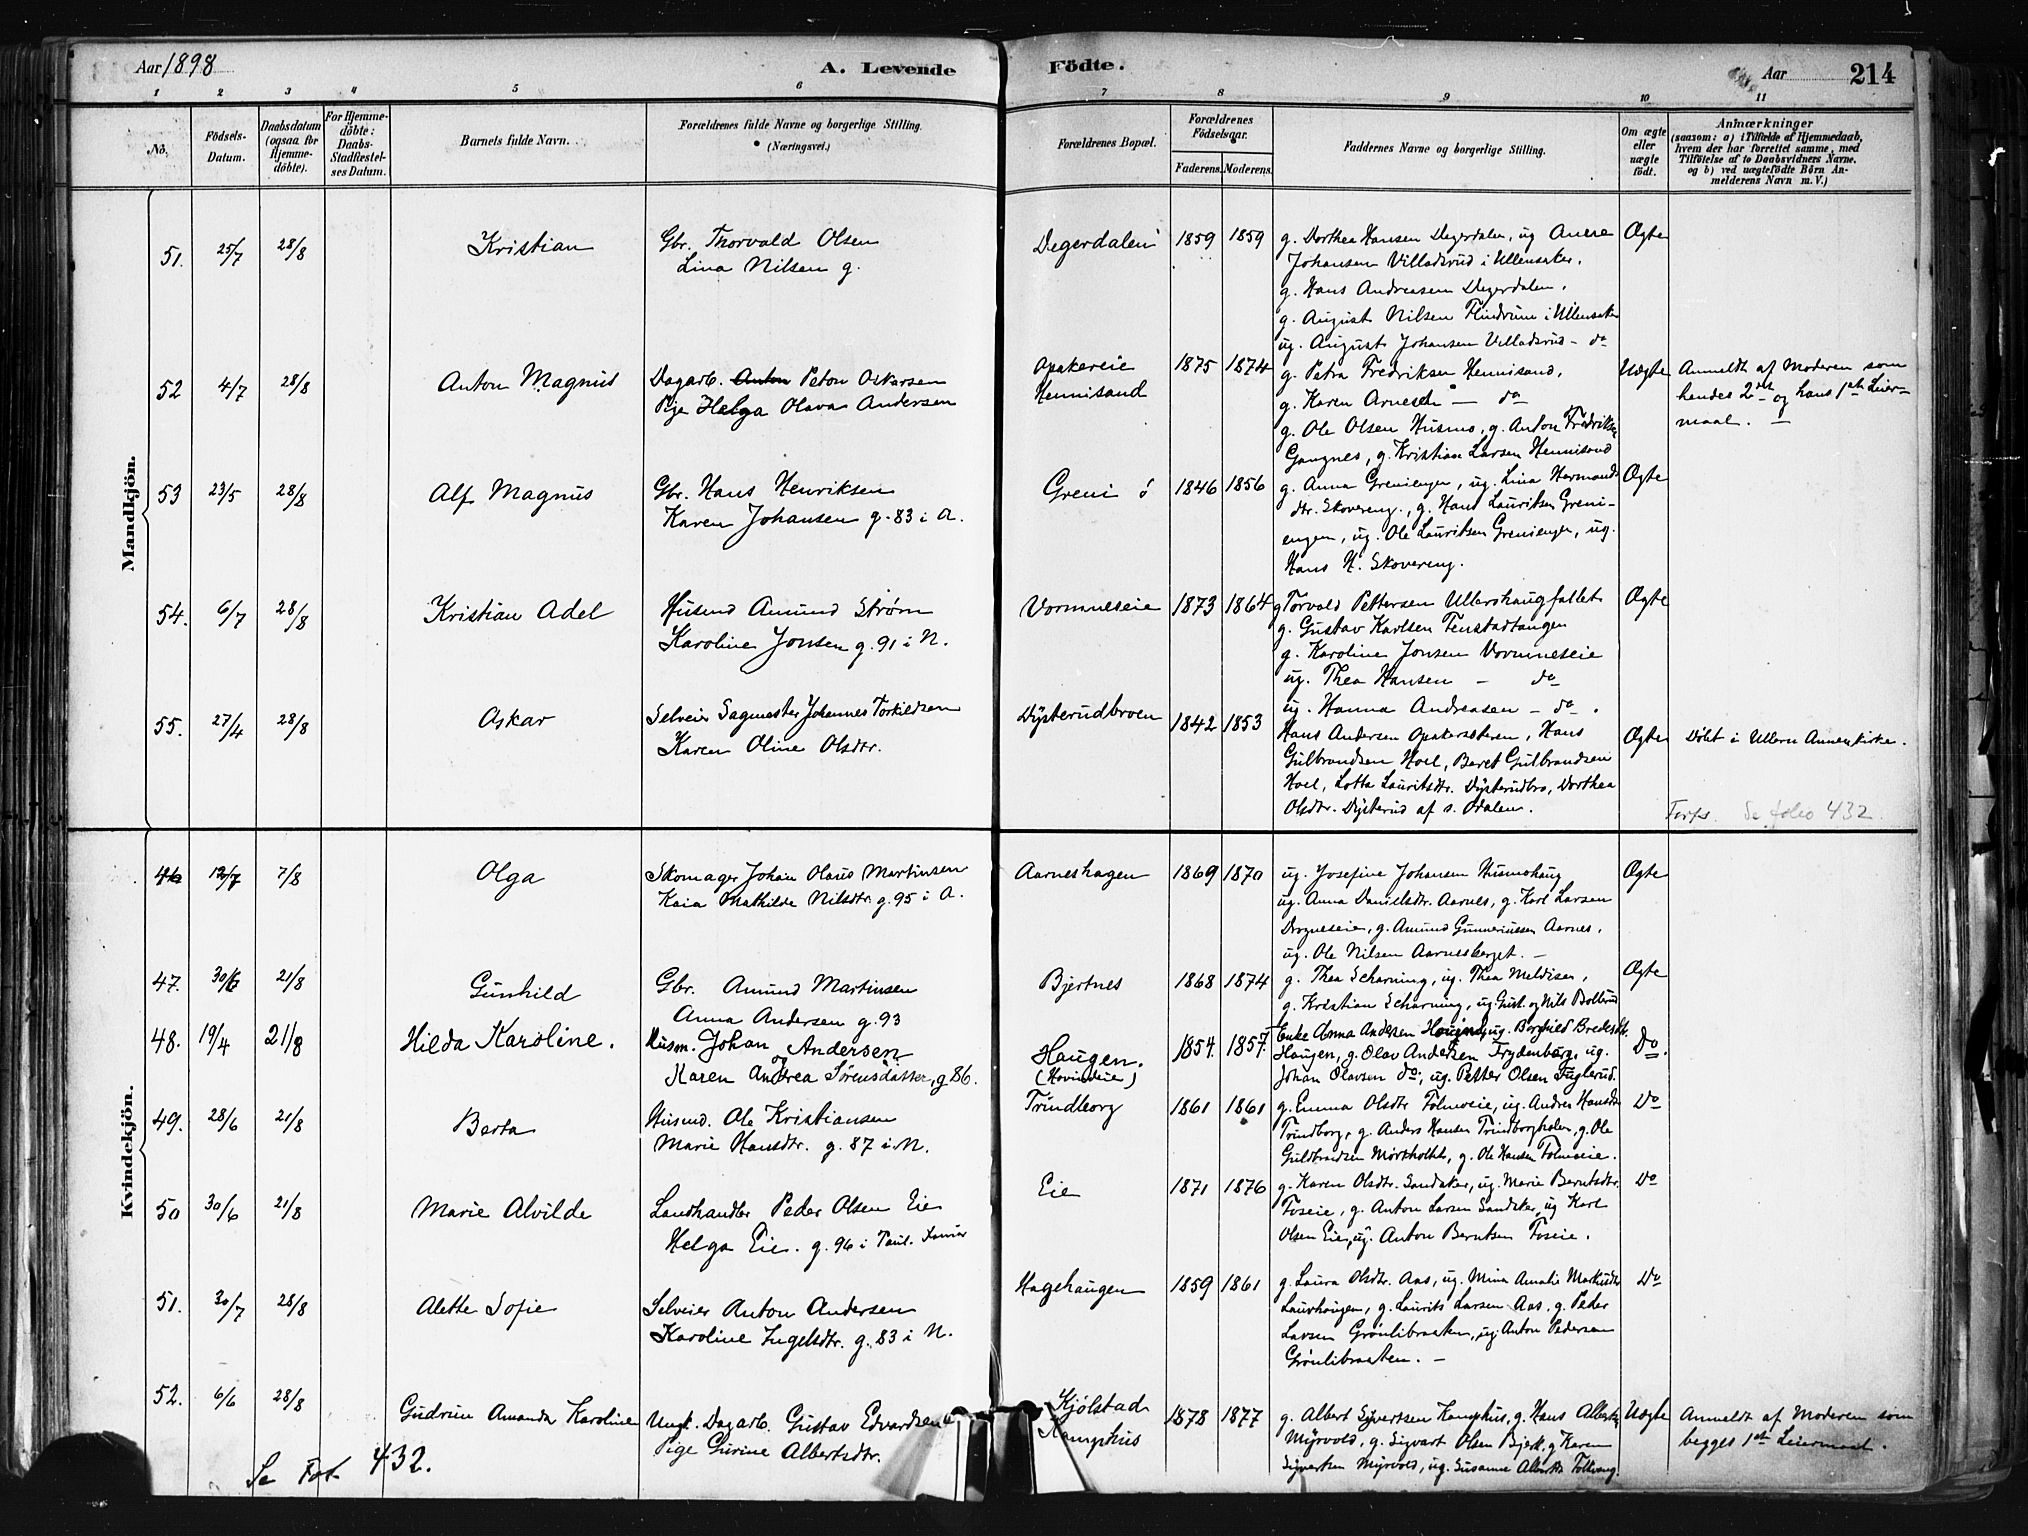 Aar 1898
A. Levende
Födte.
Aar
214
1 2 3 4 5 6 7 8 9 10 11
No.
Födsels-
Datum.
Daabsdatum
(ogsaa for
Hjemme-
döbte).
For Hjemme-
döbte:
Daabs-
Stadfæstel-
ses Datum.
Barnets fulde Navn.
Forældrenes fulde Navne og borgerlige Stilling.
(Næringsvei.)
Forældrenes Bopæl.
Forældrenes
Födselsaar.
Faderens. Moderens.
Faddernes Navne og borgerlige Stilling.
Om ægte
eller
uægte
födt.
Anmærkninger
(saasom: a) i Tilfælde af Hjemmedaab,
hvem der har forrettet samme, med
Tilföielse af to Daabsvidners Navne.
og b) ved uægtefödte Börn An-
melderens Navn m. V.)
Mandkjön.
51. 25/7 28/8 Kristian
Gbr. Thorvald Olsen
Lina Nilsen g.
Degerdalen 1859 1859
g. Dorthea Hansen Degerdalen, ug Anere
Johansen Villadsrud i Ullensaker.
g. Hans Andreasen Degerdalen.
g. August Nilsen Flindrum i Ullensaker
ug. August Johansen Villadsrud - do
Ægte
52 4/7 28/8 Anton Magnus
Dagarb. Anton Peton Oskarsen
Pige Helga Olava Andersen
Opakereie
Hennisand
1875 1874
g. Petra Fredriksen Hennisand.
g. Karen Arnesdt — do
g. Ole Olsen Husmo, g. Anton Fredriksen
Gangnes, g. Kristian Larsen Hennisand
Uægte
Anmeldt af Moderen som
hendes 2det og hans 1ste Leier-
maal. —
53 23/5 28/8 Alf Magnus
Gbr. Hans Henriksen
Karen Johansen g. 83 i A.
Greni ö 1846 1856
g. Anna Grenienger, ug. Lina Hermands
dtr. Skovereng., g. Hans Lauritsen Greni-
engen, ug. Ole Lauritsen Grenienger, ug.
Hans H. Skovereng.
Ægte
54. 6/7 28/8 Kristian Adel
Husmd Amund Strøm
Karoline Jonsen g. 91 i N.
Vormneseie 1873 1864
g Torvald Pettersen Ullershaugfallet
g. Gustav Karlsen Tenstadtangen
g. Karoline Jonsen Vormneseie
ug. Thea Hansen - do
ug. Hanna Andreasen - do.
Ægte
55. 27/4 28/8 Oskar
Selveier Sagmester Johannes Torkildsen
Karen Oline Olsdtr.
Dysterudbroen 1842 1853
Hans Andersen Opakersæteren, Hans
Gulbrandsen Hoel, Beret Gulbrandsen
Hoel, Lotta Lauritsdtr. Dysterudbro, Dorthea
Olsdtr. Dysterud af s. Odalen.
Ægte
Døbt i Ullern Annexkirke.
Forts. Se folio 432
Kvindekjön.
46 12/7 7/8 Olga
Skomager Johan Olaus Martinsen
Kaia Mathilde Nilsdtr. g. 95 i A.
Aarneshagen 1869 1870
ug. Josefine Johansen Husmohaug
ug. Anna Danielsdtr. Aarnes, g. Karl Larsen
Drogneseie, g. Amund Gunneriussen Aarnes.
ug. Ole Nilsen Aarnesberget. -
Ægte
47. 30/6 21/8 Gunhild
Gbr. Amund Martinsen
Anna Andersen g. 93
Bjertnes 1868 1874
g. Thea Scharning, ug. Thea Meldisen,
g. Kristian Scharning, ug. Gust. og Nils Bolbrud
Ægte
48. 19/4 21/8 Hilda Karoline.
Husm. Johan Andersen
og
Karen Andrea Sørensdatter, g 86.
Haugen.
(Hovindeie)
1854. 1857.
Enke Anna Andersen Haugen, ug. Borghild Bredesdt.
Haugen, g. Olav Andersen Frydenberg, ug.
Johan Olavsen do, ug. Petter Olsen Fuglerud.
Do.
49. 28/6 21/8 Berta
Husmd. Ole Kristiansen
Marie Hansdtr. g. 87 i N.
Trindborg 1861 1861
g. Emma Olsdtr Folmoeie, ug. Andrea Hansdtr
Trindborg, g. Anders Hansen Trindborgholen, g. Ole
Guldbrandsen Mørkholtet, g. Ole Hansen Folmoeie.
Do
50 30/6 21/8 Marie Alvilde
Landhandler Peder Olsen Eie
Helga Eie. g. 96 i Paul. Kirke
Eie 1871 1876
g. Karen Olsdtr. Sandaker, ug. Marie Berntsdtr.
Foseie, g. Anton Larsen Sandaker, ug Karl
Olsen Eie, ug. Anton Berntsen Foseie.
Do
51. 30/7 28/8 Alette Sofie
Selveier Anton Andersen
Karoline Ingelsdtr. g. 83 i N.
Hagehaugen 1859 1861
g. Laura Olsdtr. Aas, ug. Mina Amalie Markusdtr
Laurhaugen, g. Laurits Larsen Aas. g. Peder
Larsen Grønlibraaten, ug. Anton Pedersen
Grønlibraaten. -
Do
52. 6/6 28/8 Gudrun Amanda Karoline
Ungk. Dagarb. Gustav Edvardsen
Pige Gurine Albertsdtr.
Kjölstad
Kampehus
1878 1877
g. Albert Syvertsen Kampehus, g. Hans Albertsen
Myrvold, g. Sigvart Olsen Bjerk, g Karen
Syvertsen Myrvold, ug. Susanne Albertsd Tollvang.
Uægte
Anmeldt af Moderen som
begges 1ste Leiermaal.
Se Fol. 432.